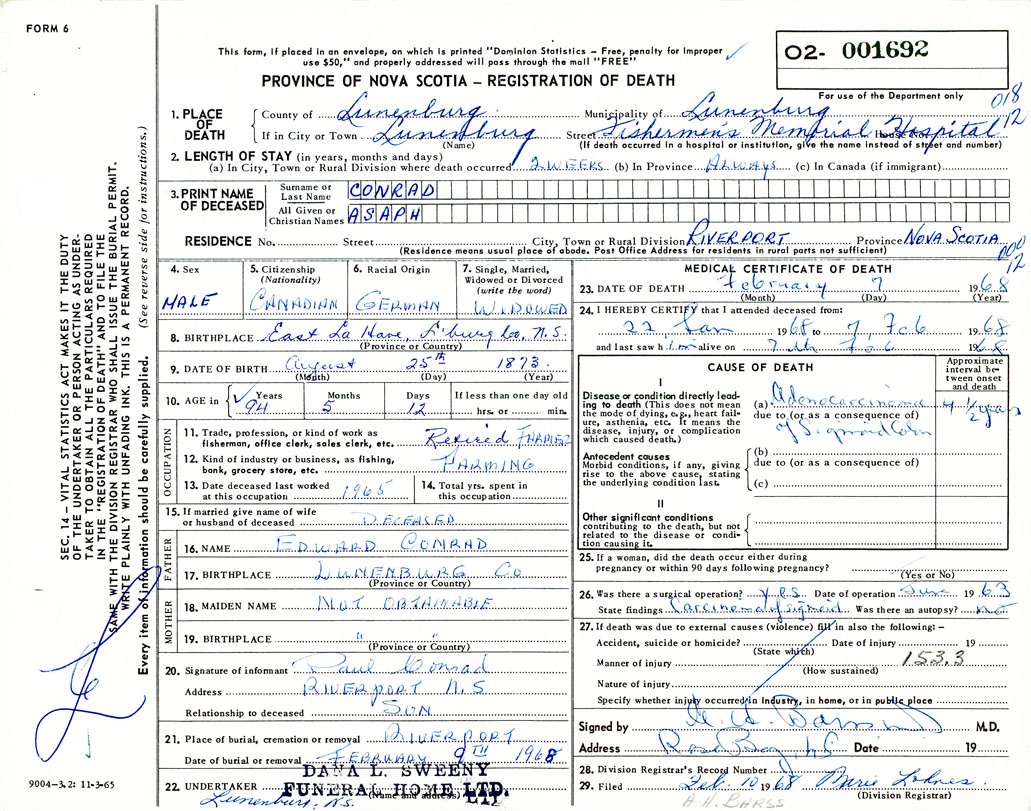 FORM 6
This form, if placed in an envelope, on which is printed "Dominion Statistics – Free, penalty for improper
use $50," and properly addressed will pass through the mail "FREE"
PROVINCE OF NOVA SCOTIA – REGISTRATION OF DEATH
O2- 001692
For use of the Department only
018
12
1. PLACE OF DEATH
County of Lunenburg Municipality of Lunenburg
If in City or Town Lunenburg Street Fishermen's Memorial Hospital House No.
(Name) (If death occurred in a hospital or institution, give the name instead of street and number)
2. LENGTH OF STAY (in years, months and days)
(a) In City, Town or Rural Division where death occurred 2 WEEKS (b) In Province ALWAYS (c) In Canada (if immigrant)
3. PRINT NAME OF DECEASED
Surname or Last Name CONRAD
All Given or Christian Names ASAPH
RESIDENCE No. Street City, Town or Rural Division RIVERPORT Province NOVA SCOTIA
(Residence means usual place of abode. Post Office Address for residents in rural parts not sufficient)
000
12
4. Sex MALE
5. Citizenship (Nationality) CANADIAN
6. Racial Origin GERMAN
7. Single, Married, Widowed or Divorced (write the word) WIDOWED
8. BIRTHPLACE East La Have, L'burg Co, N.S.
(Province or Country)
9. DATE OF BIRTH August 25th 1873
(Month) (Day) (Year)
10. AGE in Years 94 Months 5 Days 12 If less than one day old hrs. or min.
OCCUPATION
11. Trade, profession, or kind of work as fisherman, office clerk, sales clerk, etc. Retired FARMER
12. Kind of industry or business, as fishing, bank, grocery store, etc. FARMING
13. Date deceased last worked at this occupation 1965
14. Total yrs. spent in this occupation
15. If married give name of wife or husband of deceased DECEASED
FATHER
16. NAME EDWARD CONRAD
17. BIRTHPLACE LUNENBURG CO
(Province or Country)
MOTHER
18. MAIDEN NAME NOT OBTAINABLE
19. BIRTHPLACE " "
(Province or Country)
20. Signature of informant Paul Conrad
Address RIVERPORT N.S
Relationship to deceased SON
21. Place of burial, cremation or removal RIVERPORT
Date of burial or removal FEBRUARY 9TH 1968
22. UNDERTAKER DANA L. SWEENY
FUNERAL HOME LTD.
(Name and address)
Lunenburg, N.S.
MEDICAL CERTIFICATE OF DEATH
23. DATE OF DEATH February 7 1968
(Month) (Day) (Year)
24. I HEREBY CERTIFY that I attended deceased from:
22 Jan 1968 to 7, Feb 1968
and last saw him alive on 7th Feb 1968
CAUSE OF DEATH
Approximate interval between onset and death
I
Disease or condition directly leading to death (This does not mean the mode of dying, e.g., heart failure, asthenia, etc. It means the disease, injury, or complication which caused death.)
(a) Adenocarcinoma 4 1/2 years
due to (or as a consequence of)
of Sigmoid Colon
Antecedent causes
Morbid conditions, if any, giving rise to the above cause, stating the underlying condition last.
(b)
due to (or as a consequence of)
(c)
II
Other significant conditions
contributing to the death, but not related to the disease or condition causing it.
25. If a woman, did the death occur either during pregnancy or within 90 days following pregnancy?
(Yes or No)
26. Was there a surgical operation? yes Date of operation June 1963
State findings Carcinoma of sigmoid Was there an autopsy? no
27. If death was due to external causes (violence) fill in also the following: –
Accident, suicide or homicide? Date of injury 19
(State which)
Manner of injury 153.3
(How sustained)
Nature of injury
Specify whether injury occurred in Industry, in home, or in public place
Signed by M.D.
Address Rose Bay, NS Date 19
28. Division Registrar's Record Number
29. Filed Feb. 10 1968 Marie Lohnes
(Division Registrar)
A.H. BARSS
SEC. 14 – VITAL STATISTICS ACT MAKES IT THE DUTY
OF THE UNDERTAKER OR PERSON ACTING AS UNDER-
TAKER TO OBTAIN ALL THE PARTICULARS REQUIRED
IN THE "REGISTRATION OF DEATH" AND TO FILE THE
SAME WITH THE DIVISION REGISTRAR WHO SHALL ISSUE THE BURIAL PERMIT.
WRITE PLAINLY WITH UNFADING INK. THIS IS A PERMANENT RECORD.
Every item of information should be carefully supplied. (See reverse side for instructions.)
9004–3.2: 11-3-65